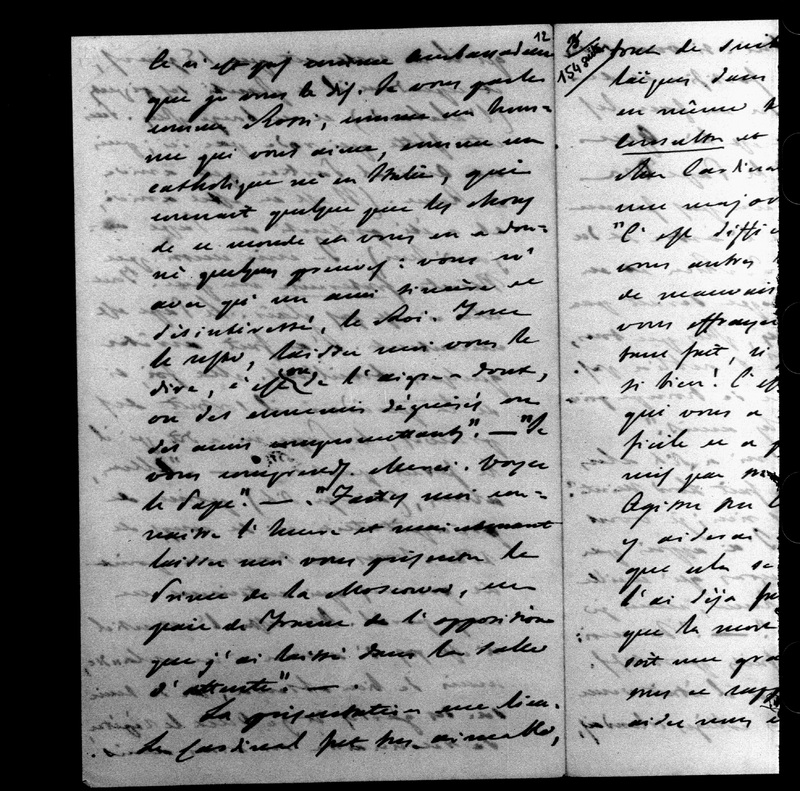 12
Ce n'est pas comme Ambassadeur
que je vous le dis. Je vous parle
comme Rossi, comme un hom-
me qui vous aime, comme un
catholique né en Italie, qui
connait quelque peu les choses
de ce monde et vous en a don-
né quelques preuves: vous n'
avez qu'un ami sincère et
désintéressé, le Roi. Tout
le reste, laissez moi vous le
dire, c'est ou de l'aigre-doux,
ou des ennemis déguisés ou
des amis compromettants". — "Je
vous comprends. Merci. Voyez
le Pape". — "Faites moi con-
naitre l'heure et maintenant
laissez moi vous présenter le
Prince de la Moscowa, un
pair de France de l'opposition
que j'ai laissé dans la salle
d'attente". —
La présentation eut lieu.
Le Cardinal fut très aimable,
154
tout de suite
laïques dans
en même
Consulta et
Mon Cardinal
une major
"C'est diffi
vous autres
de mauvais
vous effrayer
tout fait, si
si bien! C'est
qui vous a
ficile et a
nuit pas
Agissez sur
y aiderai
que cela se
l'ai déjà fa
que la mort
soit une gra
nous ce rapp
aidez nous